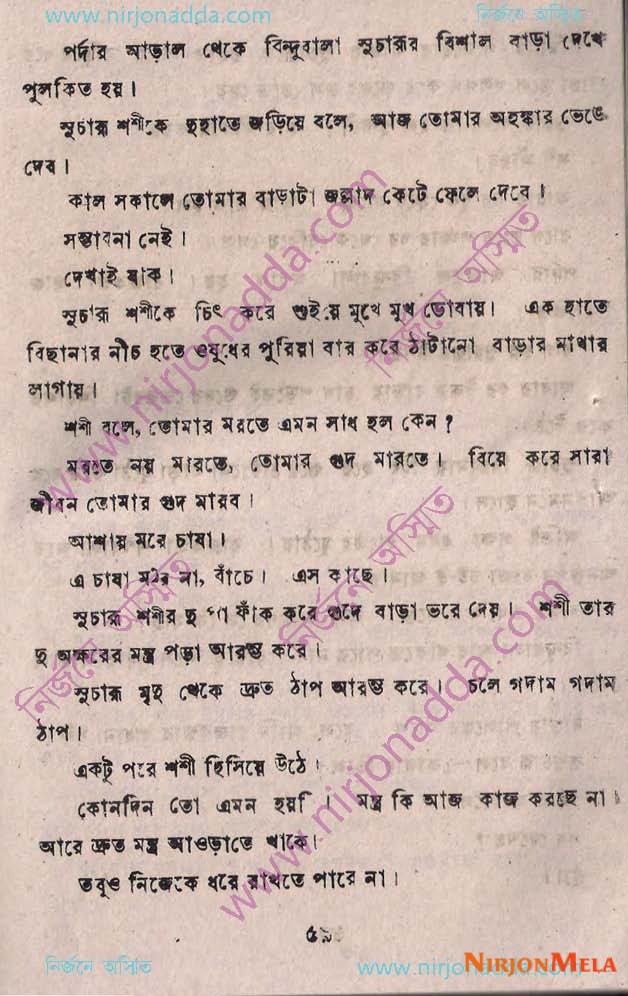 www.nirjonadda.com নির্জনে অস্মিত
পর্দার আড়াল থেকে বিন্দুবালা সুচারুর বিশাল বাড়া দেখে
পুলকিত হয়।
সুচারু শশীকে দুহাতে জড়িয়ে বলে, আজ তোমার অহঙ্কার ভেঙে
দেব।
কাল সকালে তোমার বাড়াটা জল্লাদ কেটে ফেলে দেবে।
সম্ভাবনা নেই।
দেখাই যাক।
সুচারু শশীকে চিৎ করে শুইয়ে মুখে মুখ ডোবায়। এক হাতে
বিছানার নীচ হতে ওষুধের পুরিয়া বার করে ঠাটানো বাড়ার মাথার
লাগায়।
শশী বলে, তোমার মরতে এমন সাধ হল কেন?
মরতে নয় মারতে, তোমার গুদ মারতে। বিয়ে করে সারা
জীবন তোমার গুদ মারব।
আশায় মরে চাষা।
এ চাষা মরে না, বাঁচে। এস কাছে।
সুচারু শশীর দু পা ফাঁক করে গুদে বাড়া ভরে দেয়। শশী তার
দু অক্ষরের মন্ত্র পড়া আরম্ভ করে।
সুচারু মৃদু থেকে দ্রুত ঠাপ আরম্ভ করে। চলে গদাম গদাম
ঠাপ।
একটু পরে শশী হিসিয়ে উঠে।
কোনদিন তো এমন হয়নি। মন্ত্র কি আজ কাজ করছে না।
আরে দ্রুত মন্ত্র আওড়াতে থাকে।
তবুও নিজেকে ধরে রাখতে পারে না।
www.nirjonadda.com
নির্জনে অস্মিত
নির্জনে অস্মিত
নির্জনে অস্মিত
www.nirjonadda.com
নির্জনে অস্মিত www.nirjonadda.com
NIRJONMELA